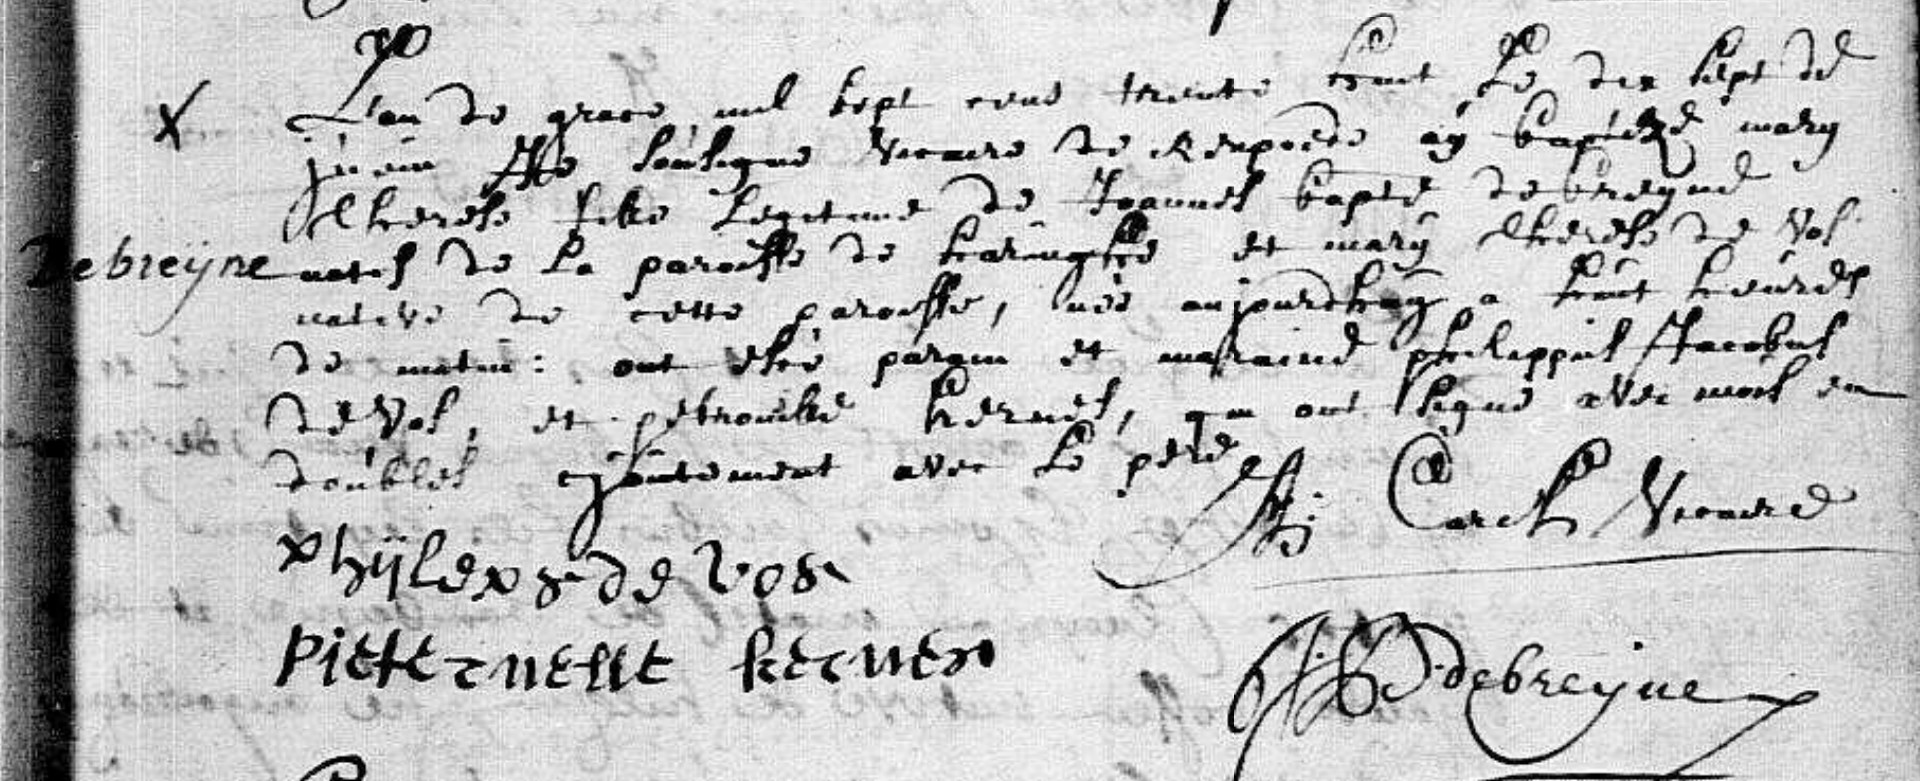 X
L'an de grace mil sept cens trente huit Le dix sept de
juin Je soubsigne Vicaire de Rexpoede ay baptizé mary
Therese fille Legitime de Joannes bapte debreyne
Debreyne natif de La paroisse de haringhe et mary Therese de Vos
native de cette paroisse, née aujourdhuy a huit heures
de matin: ont esté parain et maraine philippus Jacobus
de Vos, et petronille kernes, qui ont signé avec moÿ en
doubles cjointement avec Le pere
Carck Vicaire
Phÿlexs de vos
Pieternelle kernes
JB debreyne